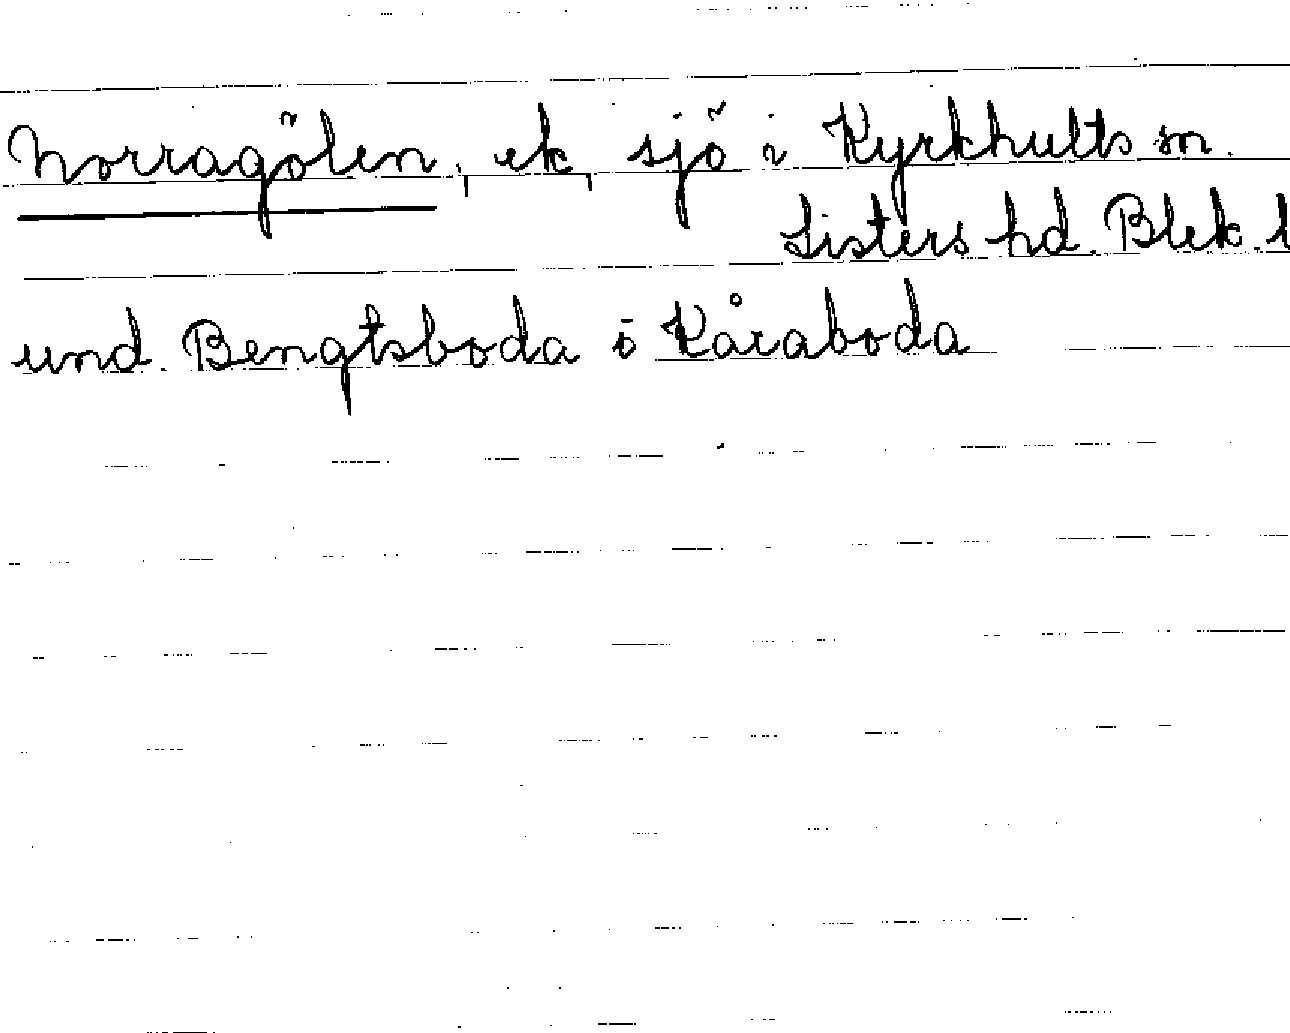 Norragölen, ek, sjö i Kyrkhults sn.
Listers hd. Blek. l
und. Bengtsboda o Kåraboda